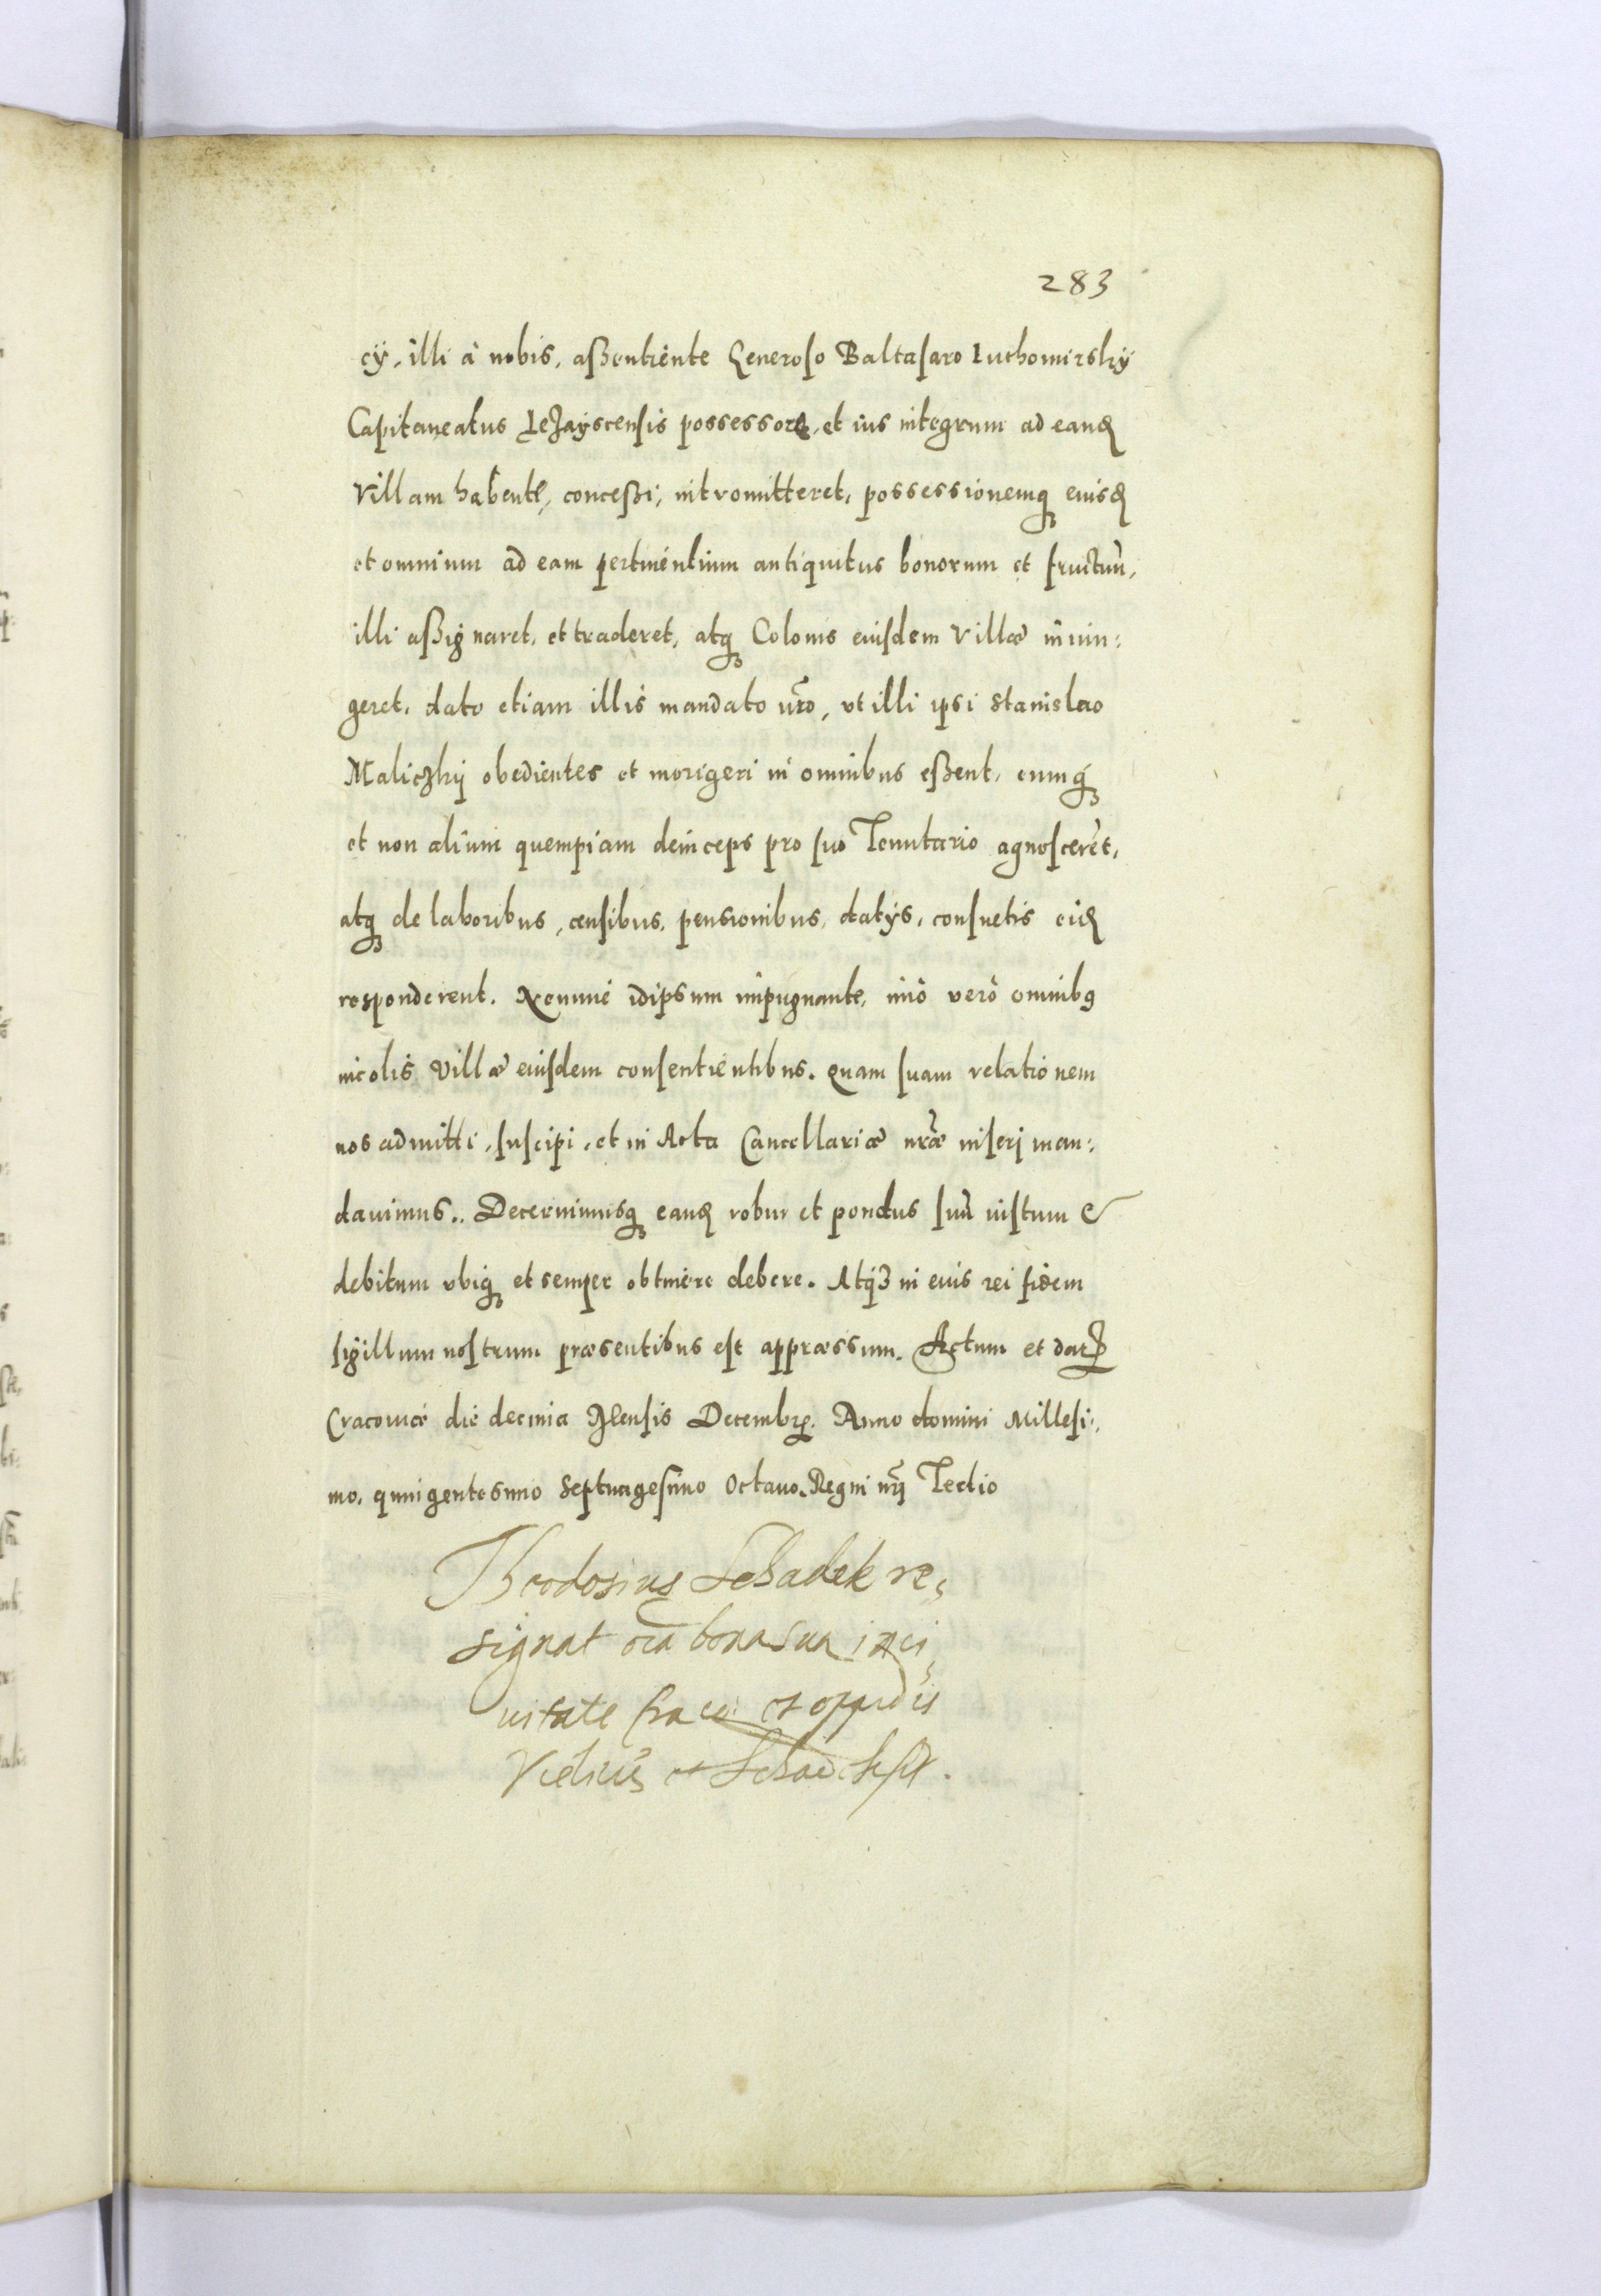 283
cÿ, illi à nobis, aßentiente Generoso Baltasaro Luthomirskÿ
Capitaneatus Leżayscensis possessore, et ius integrum ad eand
Villam habente, conceßi, intromitteret, possessionemq eiusd
et omnium ad eam pertinentium antiquitus bonorum et fructuũ,
illi aßignaret, et traderet, atq Colonis eiusdem Villæ iniun:
geret, dato etiam illis mandato nr̃o, vt illi ipsi Stanislao
Maliczkÿ obedientes et morigeri in omnibus eßent, eumq
et non alium quempiam deinceps pro suo Tenutario agnoscerẽt,
atq de laboribus, censibus, pensionibus, datÿs, consuetis eid
responderent. Nemine idipsum impugnante, imò verò omnibq
incolis Villæ eiusdem consentientibus. Quam suam relationem
nos admitti, suscipi, et in Acta Cancellariæ nr̃æ inserj man:
dauimus.. Decernimusq eand robur et pondus suũ iustum &
debitum vbiq et semper obtinere debere. Atq3 in eius rei fidem
sigillum nostrum præsentibus est appræssum. Actum et dat
Cracouiæ die decima Mensis Decembr. Anno domini Millesi:
mo, quingentesimo Septuagesimo Octauo. Regni nr̃j Tertio
Theodosius Schadek re,
signat oĩa bona sua in ci,
uitate Craco: et oppidis
Vieliciẽ et Schad